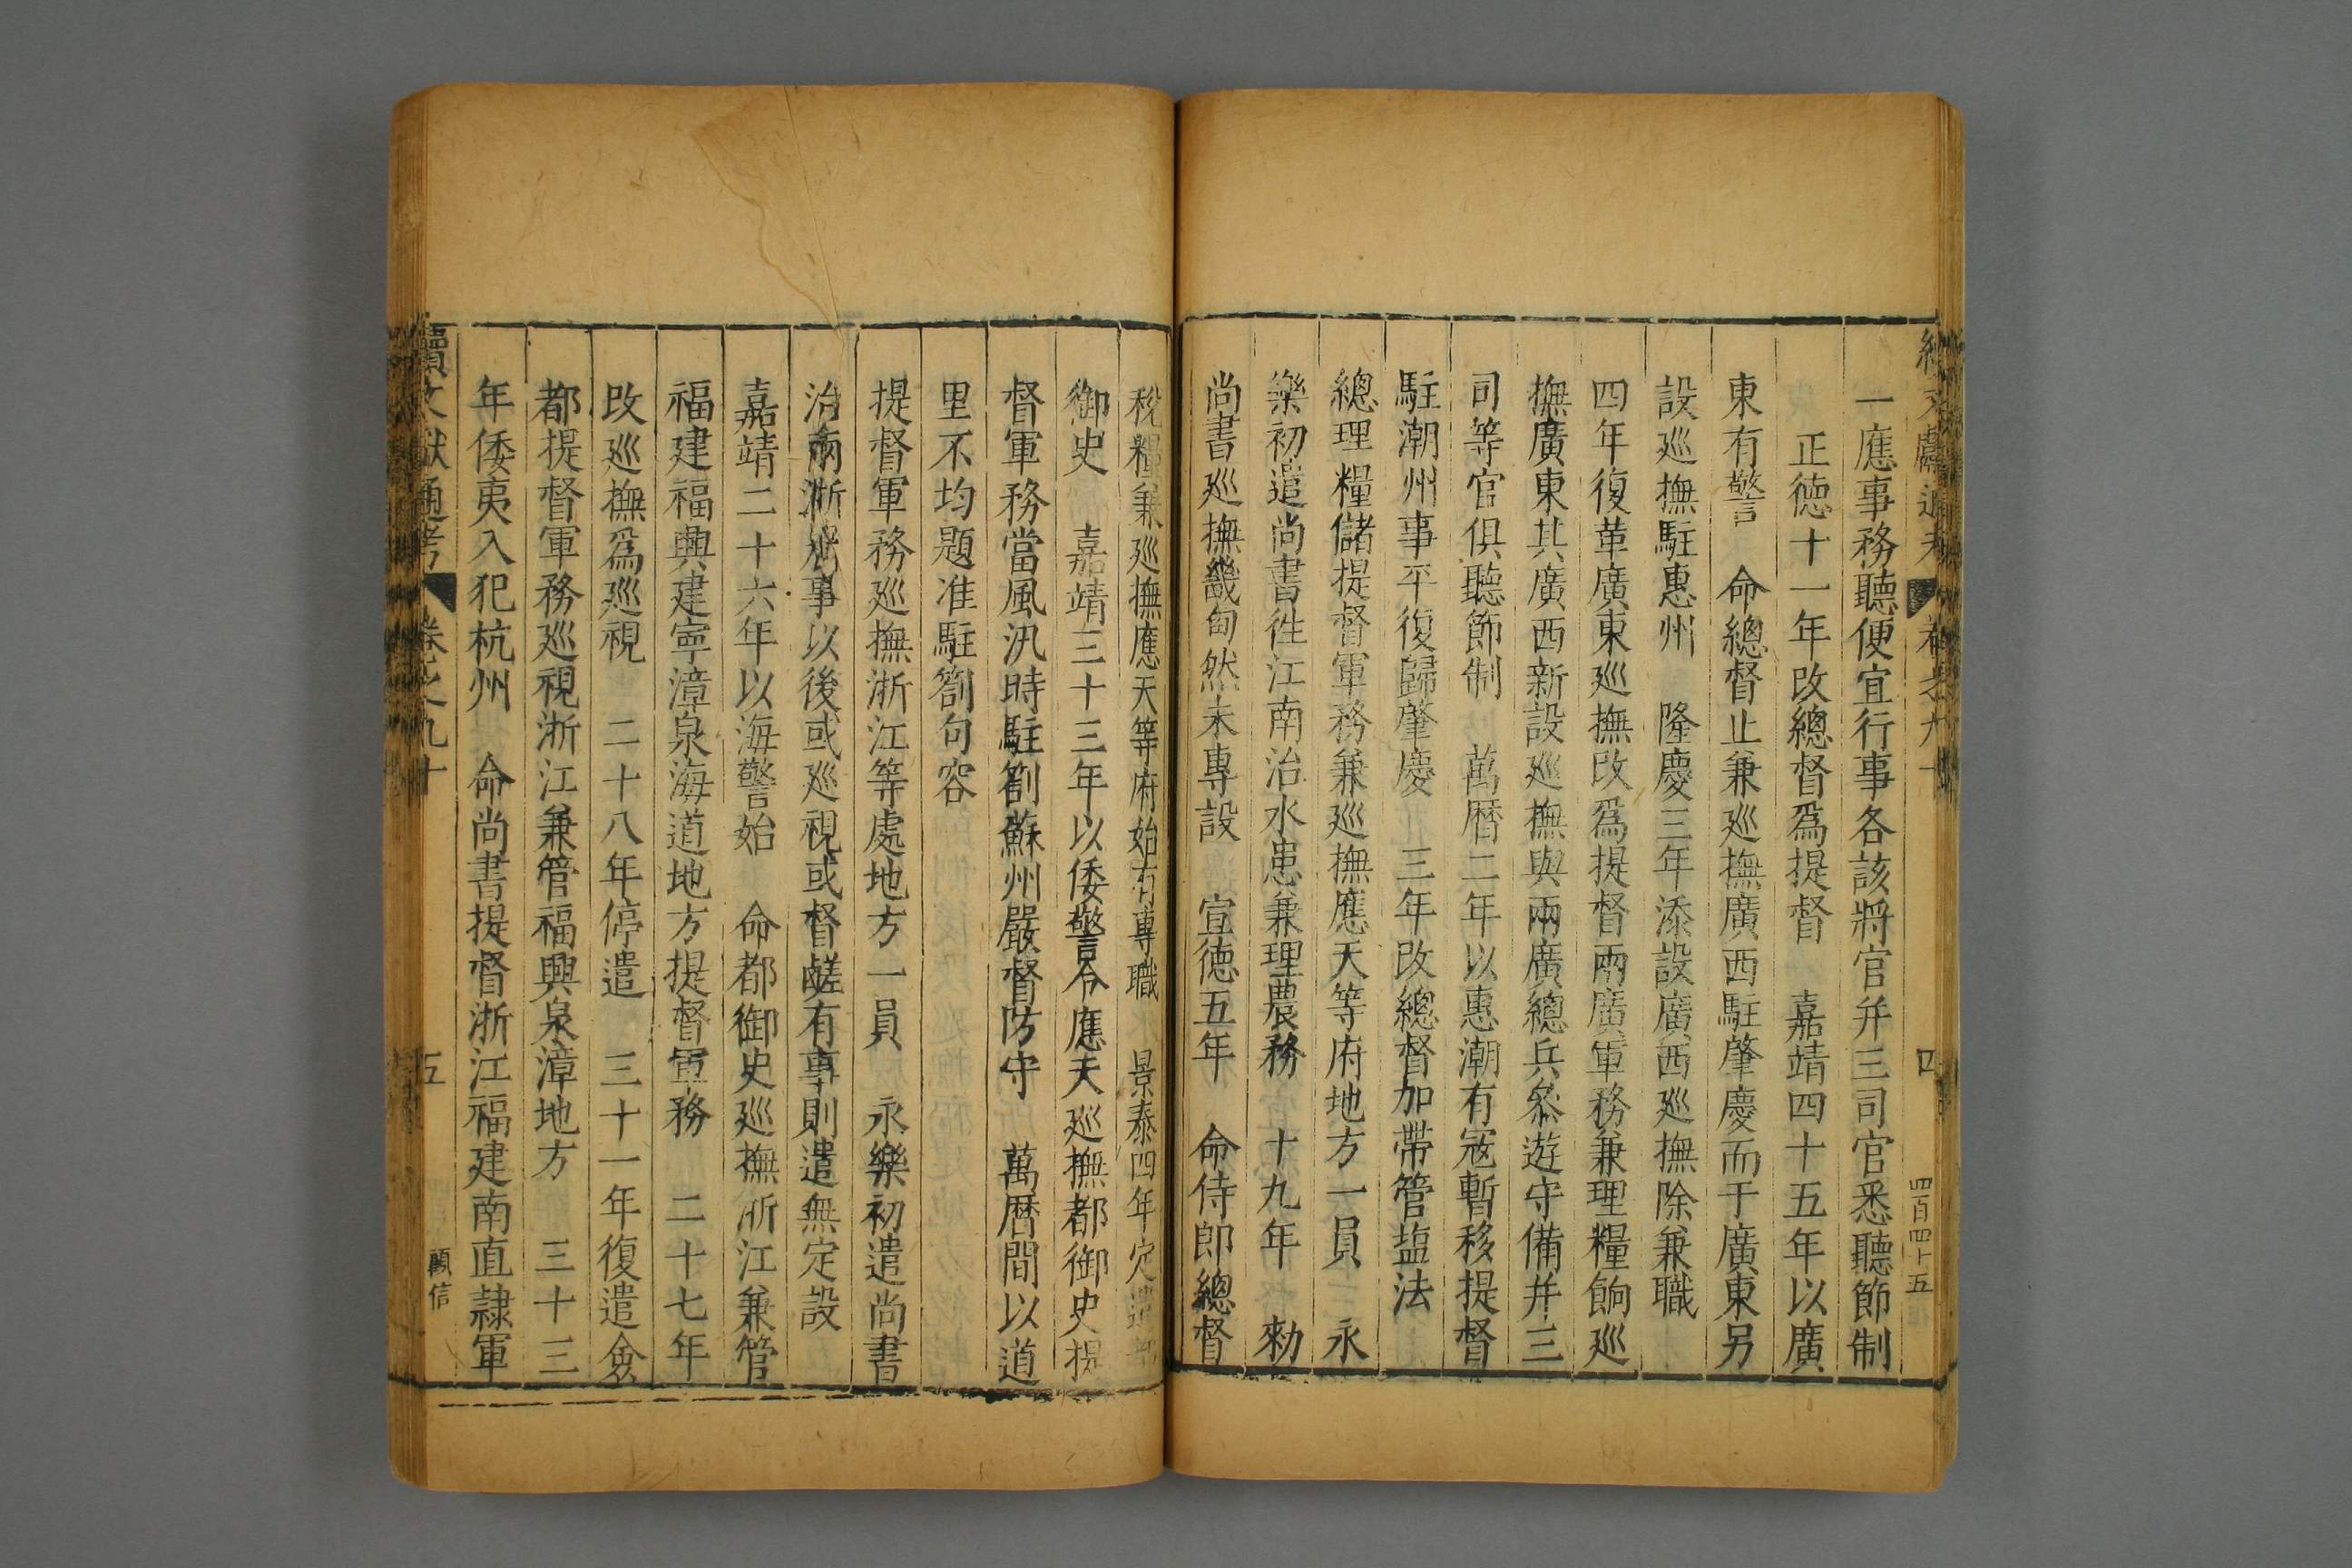 一應事務聽便宜行事各該將官幷三司官悉聽節制
正德十一年改總督爲提督 嘉靖四十五年以廣
東有警 命總督止兼巡撫廣西駐肇慶而于廣東另
設巡撫駐惠州 隆慶三年添設廣西巡撫除兼職
四年復革廣東巡撫改爲提督兩廣軍務兼理糧餉巡
撫廣東其廣西新設巡撫與兩廣總兵叅遊守備幷三
司等官俱聽節制 萬曆二年以惠潮有寇暫移提督
駐潮州事平復歸肇慶 三年改總督加帶管塩法
總理糧儲提督軍務兼巡撫應天等府地方一員 永
樂初遣尚書徃江南治水患兼理農務 十九年 勑
尚書巡撫畿甸然未專設 宣德五年 命侍郎總督
稅糧兼巡撫應天等府始有專職 景泰四年定遣都
御史 嘉靖三十三年以倭警令應天巡撫都御史提
督軍務當風汛時駐劄蘇州嚴督防守 萬曆間以道
里不均題准駐劄句容
提督軍務巡撫浙江等處地方一員 永樂初遣尚書
治兩浙農事以後或巡視或督鹺有事則遣無定設
嘉靖二十六年以海警始 命都御史巡撫浙江兼管
福建福興建寧漳泉海道地方提督軍務 二十七年
改巡撫爲巡視 二十八年停遣 三十一年復遣僉
都提督軍務巡視浙江兼管福興泉漳地方 三十三
年倭夷入犯杭州 命尚書提督浙江福建南直隸軍
續文獻通考 卷之九十 四 四百四十五
續文獻通考 卷之九十 五 顧信